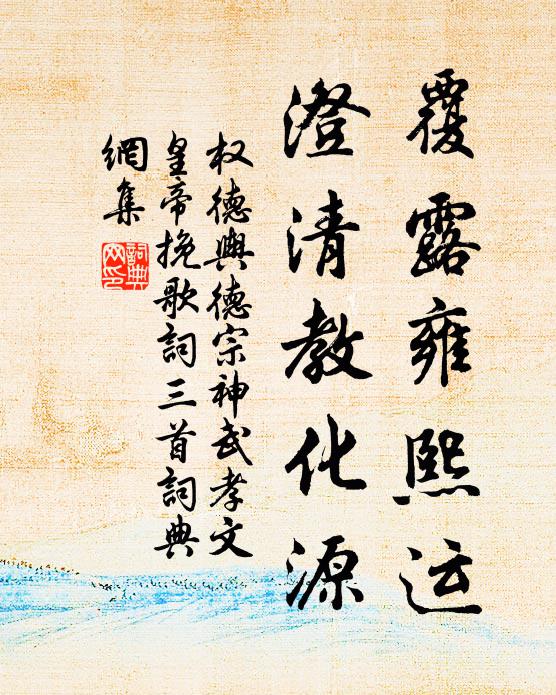 覆露雍熙运
澄清教化源
权德舆德宗神武孝文
皇帝挽歌词三首词典
網集
詞典網印